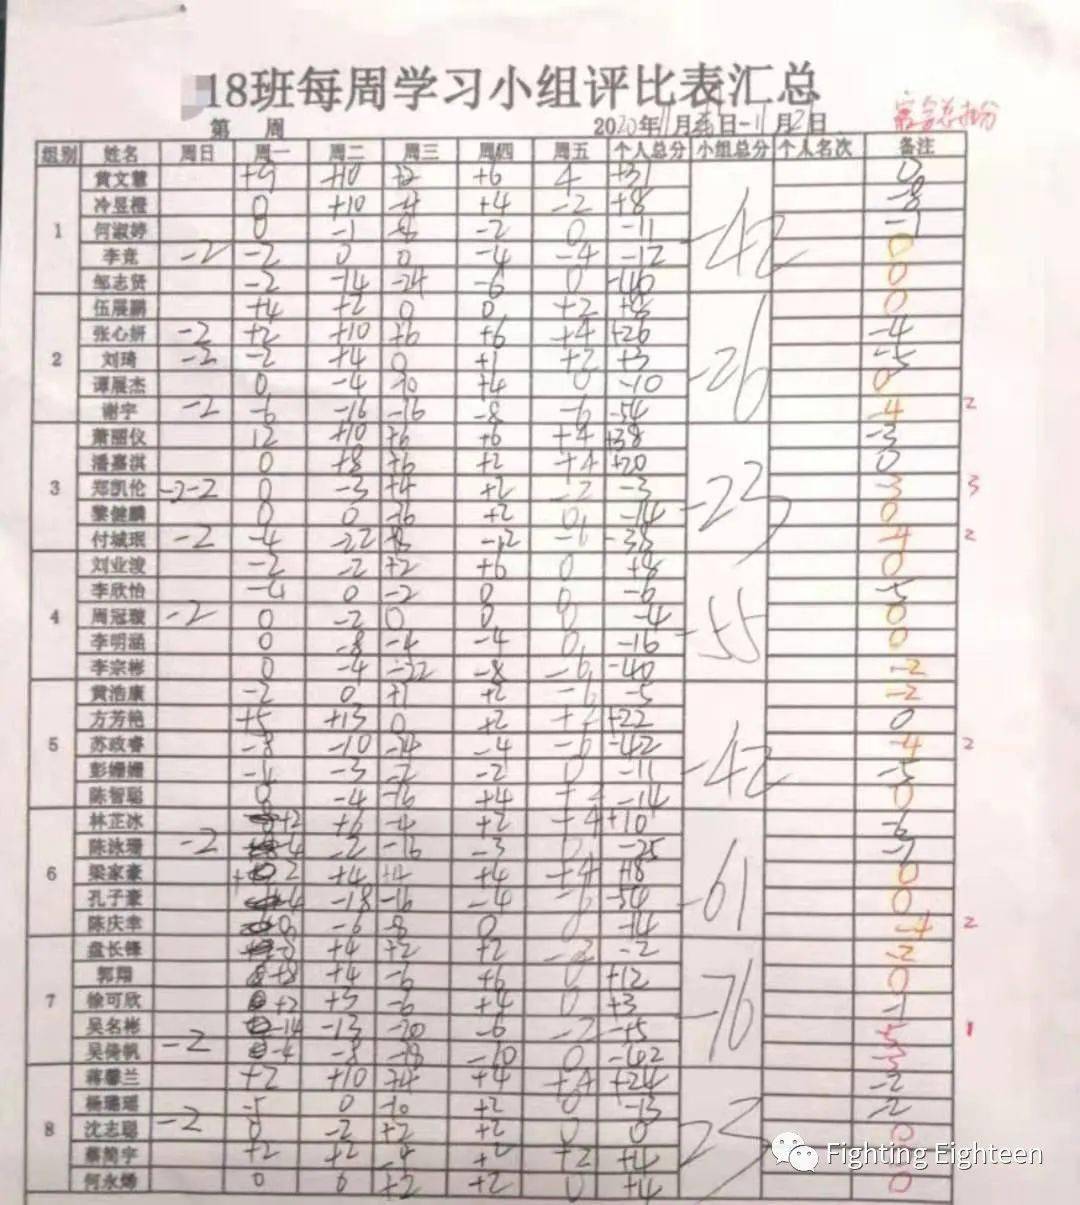 18班每周学习小组评比表汇总
宿舍总扣分
第 周 2020年11月 日-11月2 日
组别 姓名 周日 周一 周二 周三 周四 周五 个人总分 小组总分 个人名次 备注
1 黄文慧 +9 +10 +2 +6 4 +31 -42 0
冷昱橙 0 +10 -4 +4 -2 +8 -8
何淑婷 0 -1 -8 -2 0 -11 -1
李竟 -2 -2 0 0 -4 -4 -12 0
邹志贤 -2 -14 -24 -6 0 0
2 伍展鹏 +4 +2 0 0 +2 +8 -26 0
张心妍 -2 +2 +10 +6 +4 +26 -4
刘琦 -2 -2 +4 0 +1 +2 +3 -5
谭展杰 0 -4 -10 +4 0 -10 0
谢宇 -2 -6 -16 -16 -8 -6 -54 -4 2
3 萧丽仪 12 +10 +6 +6 +4 +38 -23 -3
潘嘉淇 0 +8 +6 +2 +4 +20 0
郑凯伦 -2-2 0 -3 +4 +2 -2 -3 -3 3
黎健鹏 0 0 +2 0 -14 0
付城珉 -2 -4 -22 -12 -6 -4 2
4 刘业浚 -2 -2 +2 +6 0 +4 -55 0
李欣怡 -4 0 -2 0 0 -6 -5
周冠璇 -2 0 -2 0 0 0 -4 0
李明涵 0 -8 -4 -4 0 -16 0
李宗彬 0 -4 -22 -8 -6 -40 -2
5 黄浩康 -2 0 +1 +2 -6 -5 -42 -2
方芳艳 +5 +13 0 +2 +2 +22 0
苏政睿 -8 -10 -14 -4 -6 -42 -4 2
彭姗姗 -4 -3 -2 -2 0 -11 -5
陈智聪 0 -4 -16 +4 -14 0
6 林芷冰 +2 +6 -4 +2 +4 +10 -61
陈泳珊 -2 -4 -2 -16 -3 0 -25 -7
梁家豪 +2 +4 +4 +4 +4 +18 0
孔子豪 -4 -18 -16 -4 -6 -54 0
陈庆幸 0 -6 -8 0 0 -14 -4 2
7 盘长锋 -8 +4 +2 +2 -2 -2 -76 -2
郭翔 +8 +4 -6 +6 0 +12 0
徐可欣 +2 +3 -6 +4 0 +3 -1
吴名彬 -14 -13 -20 -6 -2 -5 1
吴倚帆 -2 -4 -8 -18 -10 0 -3
8 蒋馨兰 +2 +10 +4 +4 +4 +24 23 -2
杨璐瑶 -5 0 -10 +2 0 -13 -2
沈志聪 -2 0 -2 +2 +2 0 0 0
蔡简宇 +2 +2 -4 +2 +2 +4
何永烯 0 0 +2 +2 0 +4 0
Fighting Eighteen